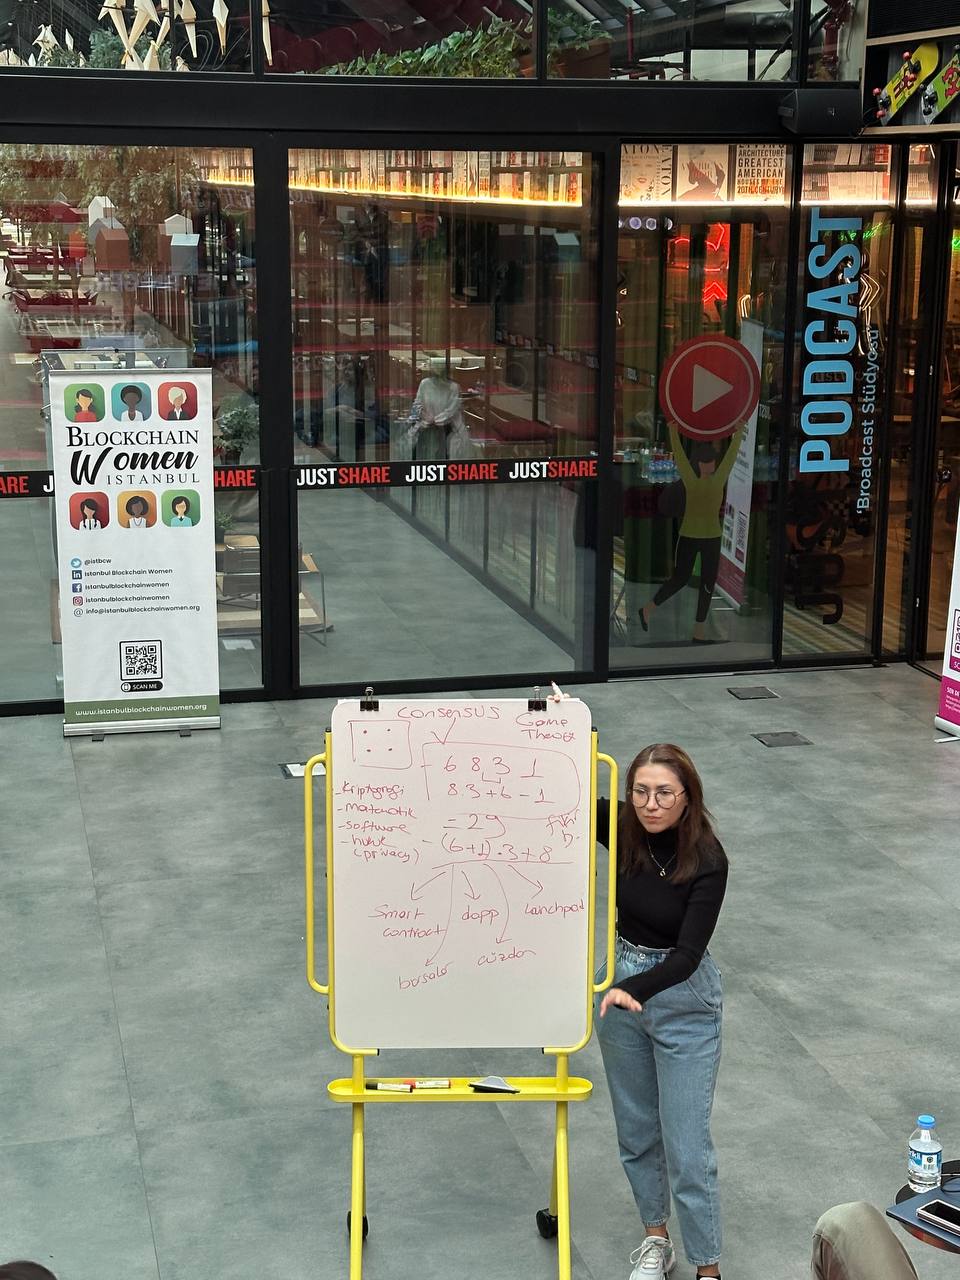 LIVING
ARCHITECTURE
GREATEST
AMERICAN
HOUSES OF THE
20TH CENTURY
PODCAST
'Broadcast Stüdyosu'
BLOCKCHAIN
Women
ISTANBUL
@istbcw
Istanbul Blockchain Women
istanbulblockchainwomen
istanbulblockchainwomen
info@istanbulblockchainwomen.org
SCAN ME
www.istanbulblockchainwomen.org
ARE
SHARE
JUSTSHARE JUSTSHARE JUSTSHARE
consensus
Game
Theory
6 8 3 1
8.3+6-1
= 29
(6+1).3+8
-kriptografi
-matematik
-software
-hukuk
(privacy)
Smart
contract
dapp
Lanchpad
borsalar
cüzdan